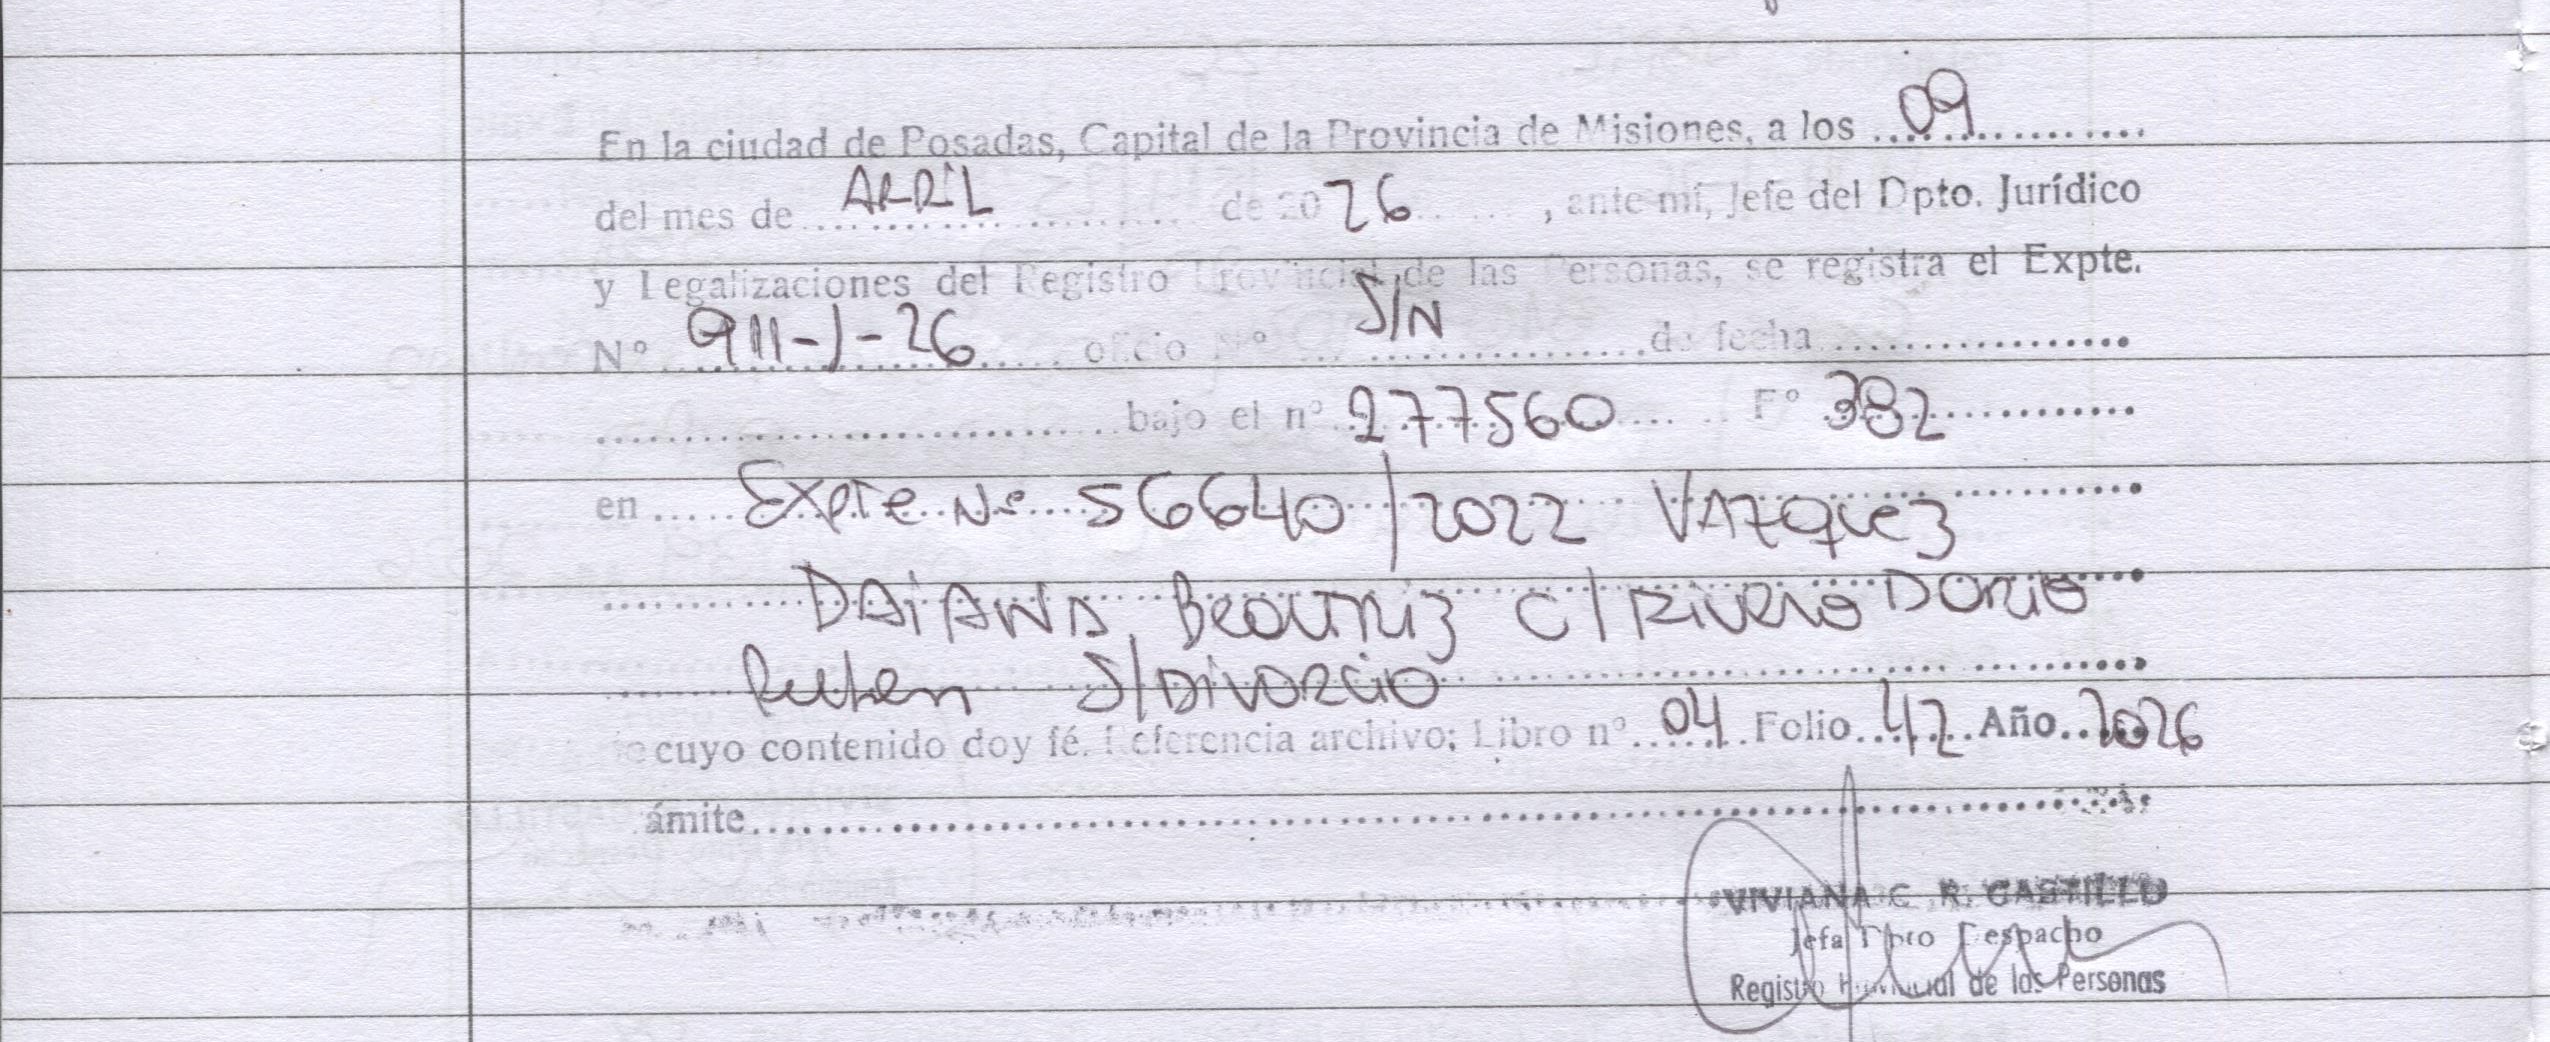 En la ciudad de Posadas, Capital de la Provincia de Misiones, a los 09
del mes de ABRIL de 2026, ante mí, Jefe del Dpto. Jurídico
y Legalizaciones del Registro Provincial de las Personas, se registra el Expte.
N° 911-J-26 oficio N° S/N de fecha
bajo el n° 277560 F° 382
en Expte N° 56640/2022 VAZquez
DAiANA Beatriz C/ Rivero Dario
Ruben S/Divorcio
de cuyo contenido doy fé. Referencia archivo: Libro n° 04 Folio 42 Año 2026
ámite
VIVIANA C. R. CASTILLO
Jefa Dpto Despacho
Registro Provincial de las Personas